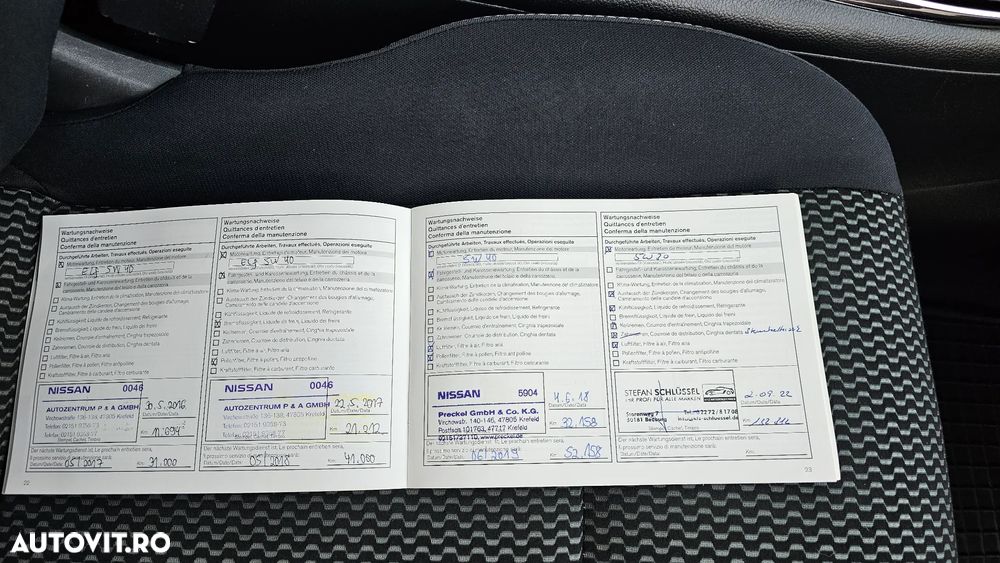 Wartungsnachweise
Quittances d'entretien
Conferma della manutenzione
Durchgeführte Arbeiten, Travaux effectués, Operazioni eseguite
Motorwartung, Entretien du moteur, Manutenzione del motore
ELF 5W40
Fahrgestell- und Karosseriewartung, Entretien du châssis et de la
carosserie, Manutenzione del telaio e della carrozzeria
Klima-Wartung, Entretien de la climatisation, Manutenzione del climatizzatore
Austausch der Zündkerzen, Changement des bougies d'allumage,
Cambiamento delle candele d'accensione
Kühlflüssigkeit, Liquide de refroidissement, Refrigerante
Bremsflüssigkeit, Liquide de frein, Liquido dei freni
Keilriemen, Courroie d'entraînement, Cinghia trapezoidale
Zahnriemen, Courroie de distribution, Cinghia dentata
Luftfilter, Filtre à air, Filtro aria
Pollenfilter, Filtre à pollen, Filtro antipolline
Kraftstofffilter, Filtre à carburant, Filtro carburante
NISSAN 0046
AUTOZENTRUM P & A GMBH
Virchowstraße 136-138, 47805 Krefeld
30.5.2016
Datum/Date/Data
Km 11.094
Stempel, Cachet, Timbro
Der nächste Wartungsdienst ist, Le prochain entretien sera,
Il prossimo servizio di manutenzione sarà:
Datum/Date/Data 05/2017 Km 31.000
22
Wartungsnachweise
Quittances d'entretien
Conferma della manutenzione
Durchgeführte Arbeiten, Travaux effectués, Operazioni eseguite
Motorwartung, Entretien du moteur, Manutenzione del motore
ELF 5W40
Fahrgestell- und Karosseriewartung, Entretien du châssis et de la
carosserie, Manutenzione del telaio e della carrozzeria
Klima-Wartung, Entretien de la climatisation, Manutenzione del climatizzatore
Austausch der Zündkerzen, Changement des bougies d'allumage,
Cambiamento delle candele d'accensione
Kühlflüssigkeit, Liquide de refroidissement, Refrigerante
Bremsflüssigkeit, Liquide de frein, Liquido dei freni
Keilriemen, Courroie d'entraînement, Cinghia trapezoidale
Zahnriemen, Courroie de distribution, Cinghia dentata
Luftfilter, Filtre à air, Filtro aria
Pollenfilter, Filtre à pollen, Filtro antipolline
Kraftstofffilter, Filtre à carburant, Filtro carburante
NISSAN 0046
AUTOZENTRUM P & A GMBH
Virchowstraße 136-138, 47805 Krefeld
22.5.2017
Datum/Date/Data
Km 21.012
Der nächste Wartungsdienst ist, Le prochain entretien sera,
Il prossimo servizio di manutenzione sarà:
Datum/Date/Data 05/2018 Km 41.000
Wartungsnachweise
Quittances d'entretien
Conferma della manutenzione
Durchgeführte Arbeiten, Travaux effectués, Operazioni eseguite
Motorwartung, Entretien du moteur, Manutenzione del motore
5W40
Fahrgestell- und Karosseriewartung, Entretien du châssis et de la
carosserie, Manutenzione del telaio e della carrozzeria
Klima-Wartung, Entretien de la climatisation, Manutenzione del climatizzatore
Austausch der Zündkerzen, Changement des bougies d'allumage,
Cambiamento delle candele d'accensione
Kühlflüssigkeit, Liquide de refroidissement, Refrigerante
Bremsflüssigkeit, Liquide de frein, Liquido dei freni
Keilriemen, Courroie d'entraînement, Cinghia trapezoidale
Zahnriemen, Courroie de distribution, Cinghia dentata
Luftfilter, Filtre à air, Filtro aria
Pollenfilter, Filtre à pollen, Filtro antipolline
Kraftstofffilter, Filtre à carburant, Filtro carburante
NISSAN 5904
Preckel GmbH & Co. K.G.
Virchowstr. 140-146, 47805 Krefeld
Postfach 101763, 47717 Krefeld
4.6.18
Datum/Date/Data
Km 32.158
Der nächste Wartungsdienst ist, Le prochain entretien sera,
Il prossimo servizio di manutenzione sarà:
Datum/Date/Data 06/2019 Km 52.158
Wartungsnachweise
Quittances d'entretien
Conferma della manutenzione
Durchgeführte Arbeiten, Travaux effectués, Operazioni eseguite
Motorwartung, Entretien du moteur, Manutenzione del motore
Fahrgestell- und Karosseriewartung, Entretien du châssis et de la
carosserie, Manutenzione del telaio e della carrozzeria
Klima-Wartung, Entretien de la climatisation, Manutenzione del climatizzatore
Austausch der Zündkerzen, Changement des bougies d'allumage,
Cambiamento delle candele d'accensione
Kühlflüssigkeit, Liquide de refroidissement, Refrigerante
Bremsflüssigkeit, Liquide de frein, Liquido dei freni
Keilriemen, Courroie d'entraînement, Cinghia trapezoidale
Courroie de distribution, Cinghia dentata
Luftfilter, Filtre à air, Filtro aria
Pollenfilter, Filtre à pollen, Filtro antipolline
Kraftstofffilter, Filtre à carburant, Filtro carburante
STEFAN SCHLÜSSEL
IHR PROFI FÜR ALLE MARKEN
50181 Bedburg
Datum/Date/Data
Km
Der nächste Wartungsdienst ist, Le prochain entretien sera,
Il prossimo servizio di manutenzione sarà:
Datum/Date/Data Km
23
AUTOVIT.RO